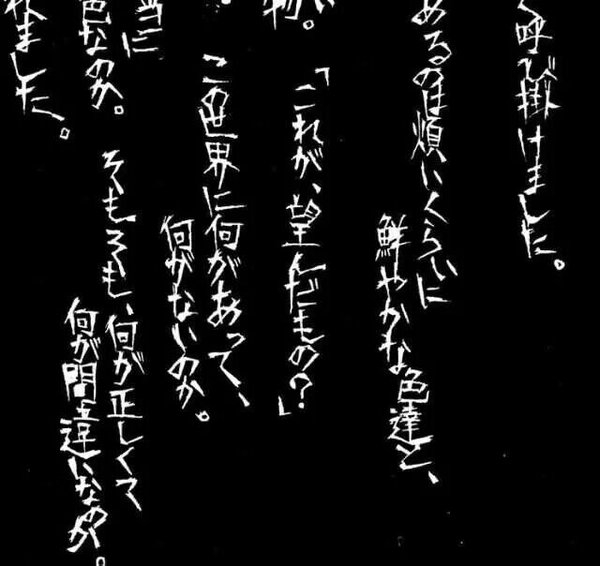 く呼び掛けました。
あるのは煩いくらいに
鮮やかな色達と、
い物。
「これが、望んだもの?」
。
この世界に何があって、
何がないのか。
当に
そもそも、何が正しくて
色なのか。
何が間違いなのか。
れました。